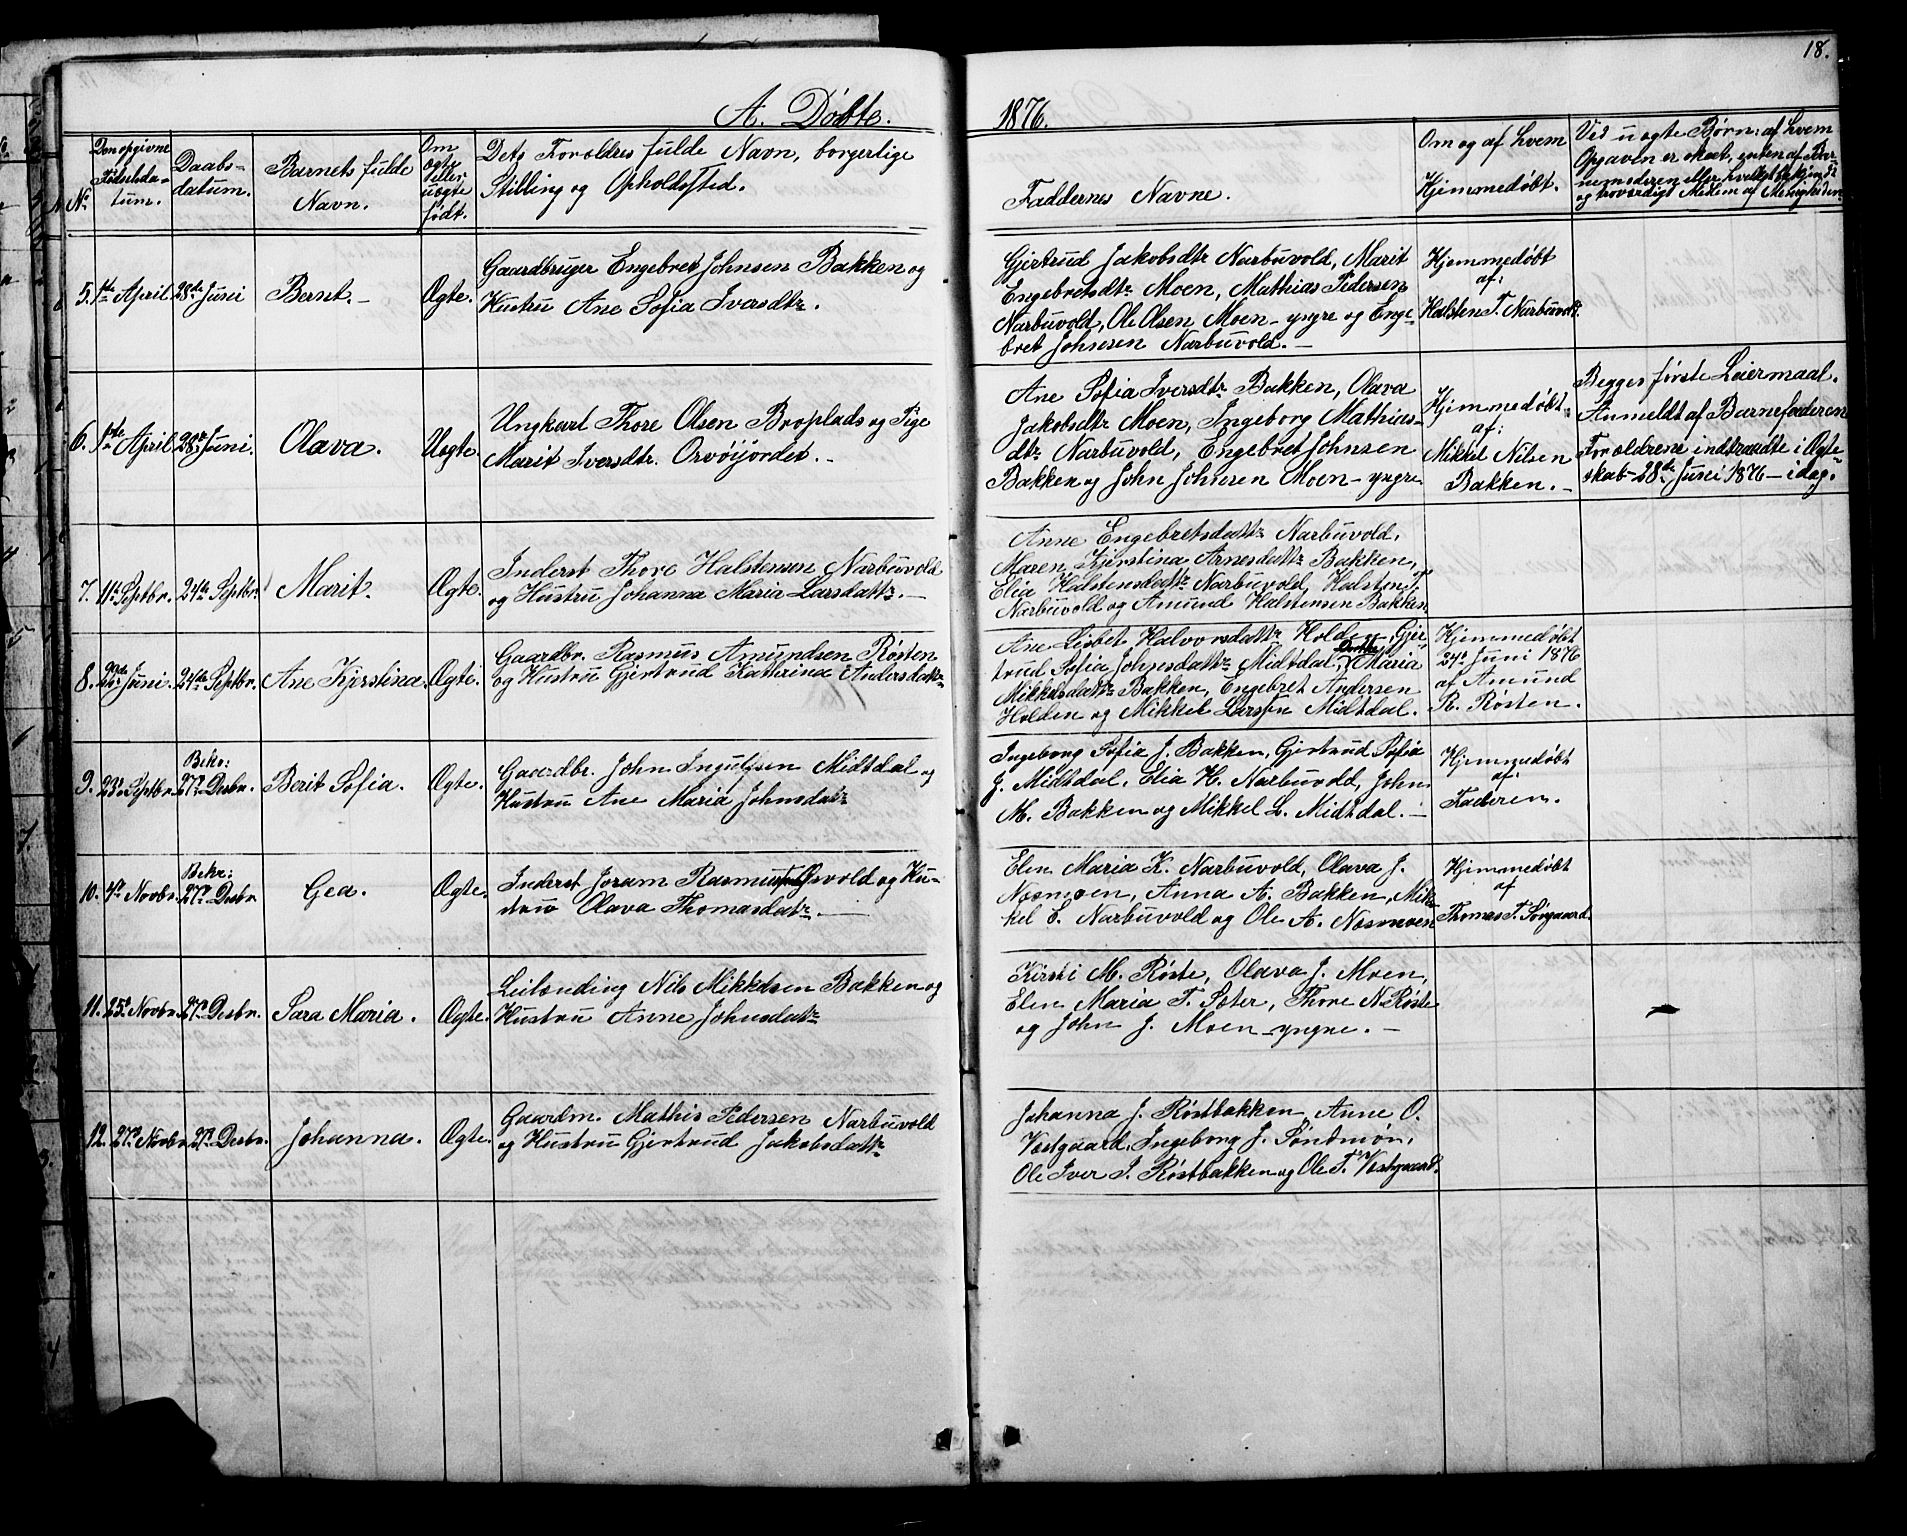 18.
A. Døbte.
1876.
No
Den opgivne
Fødselsda-
tum.
Daabs-
datum.
Barnets fulde
Navn.
Om
ægte
eller
uægte
født.
Dets Forældres fulde Navn, borgerlige
Stilling og Opholdssted.
Faddernes Navne.
Om og af hvem
Hjemmedøbt.
Ved uægte Børn: af hvem
Opgaven er skeet, enten af Bar-
nemoderen eller hvilket bekjendt
og troværdigt Medlem af Menigheden.
5. 1ste April. 28de Juni Bernt. Ægte.
Gaardbruger Engebret Johnsen Bakken og
Hustru Ane Sofia Iversdtr.
Gjertrud Jakobsdtr Narbuvold, Marit
Engebretsdtr Moen, Mathias Pedersen
Narbuvold, Ole Olsen Moen - yngre og Enge-
bret Johnsen Narbuvold. -
Hjemmedøbt
af:
Halsten T. Narbuvold.
6. 1ste April. 28de Juni. Olava. Uægte.
Ungkarl Thore Olsen Broplads og Pige
Marit Iversdtr. Orvøijordet. -
Ane Sofia Iversdtr Bakken, Olava
Jakobsdtr Moen, Ingeborg Mathias-
dtr Narbuvold, Engebret Johnsen
Bakken og John Johnsen Moen - yngre
Hjemmedøbt
af:
Mikkel Nilsen
Bakken. -
Begges første Leiermaal.
Anmeldt af Barnefaderen
Forældrene indtraadte i Ægte-
skab - 28de Juni 1876 - idag.
7. 11te Septbr. 24de Septbr. Marit. Ægte.
Inderst Thore Halstensen Narbuvold
og Hustru Johanna Maria Larsdattr. -
Anne Engebretsdattr Narbuvold,
Maren Kjerstina Arnesdattr Bakken,
Elia Halstensdattr Narbuvold, Halsten T.
Narbuvold og Amund Halstensen Bakken
8. Juni. 24de Septbr. Ane Kjerstina. Ægte.
Gaardbr. Rasmus Amundsen Røsten
og Hustru Gjertrud Kathrina Andersdattr
Ane Lisbet Halvorsdattr Holden, Gjer-
trud Sofia Johnsdattr Midtdal, Maria
Mikkelsdattr Bakken, Engebret Andersen
Holden og Mikkel Larsen Midtdal.
Hjemmedøbt
24de Juni 1876
af Amund
R. Røsten.
9. 23de Septbr.
Bekr:
27de Decbr. Berit Sofia. Ægte.
Gaardbr. John Ingulfsen Midtdal og
Hustru Ane Maria Johnsdatr
Ingeborg Sofia J. Bakken, Gjertrud Sofia
J. Midtdal, Elia H. Narbuvold, John
M. Bakken og Mikkel L. Midtdal. -
Hjemmedøbt
af:
Faderen.
10. 4de Novbr.
Bekr:
27de Decbr. Gea. Ægte.
Inderst Joram Rasmussen Osvold og Hu-
stru Olava Thomasdatr. -
Elen Maria K. Narbuvold, Olava J.
Næsmoen, Anna A. Bakken, Mik-
kel E. Narbuvold og Ole A. Næsmoen
Hjemmedøbt
af
Thomas T. Sorgaard.
11. 25de Novbr. 27de Decbr. Sara Maria. Ægte.
Leilænding Nils Mikkelsen Bakken og
Hustru Anne Johnsdatr
Kirsti M. Røste, Olava J. Moen,
Elen Maria T. Sæter, Thore N. Røste
og John J. Moen - yngre. -
12. 27de Novbr. 27de Decbr. Johanna. Ægte.
Gaardm. Mathis Pedersen Narbuvold
og Hustru Gjertrud Jakobsdattr
Johanna J. Røstbakken, Anne O.
Væstgaard, Ingeborg J. Søndmør,
Ole Iver I. Røstbakken og Ole T. Væstgaard.